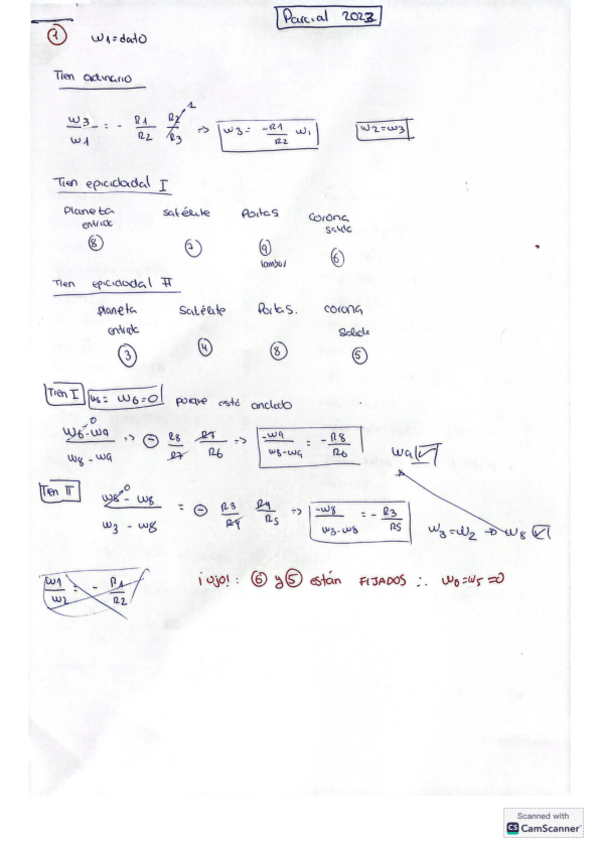 Parcial 2023
1 W1=dato
Tren ordinario
W3/W1 = - R1/R2 R2/R3 1 => W3 = -R1/R2 W1 W2=W3
Tren epicicloidal I
Planeta satélite Portas corona
entrada salida
8 7 9 6
tambor
Tren epicicloidal II
Planeta satélite Portas. corona
entrada salida
3 4 8 5
Tren I W5 = W6=0 porque está anclado
W6-W9 0 / W8-W9 => - R8/R7 R7/R6 => -W9/W8-W9 = -R8/R6 W9 ✓
Tren II W5 0 - W8 / W3 - W8 = - R3/R4 R4/R5 => -W8/W3-W8 = - R3/R5 W3=W2 → W8 ✓
W1/W2 = - R1/R2
¡ojo!: 6 y 5 están FIJADOS ∴ W6=W5=0
Scanned with
CS CamScanner